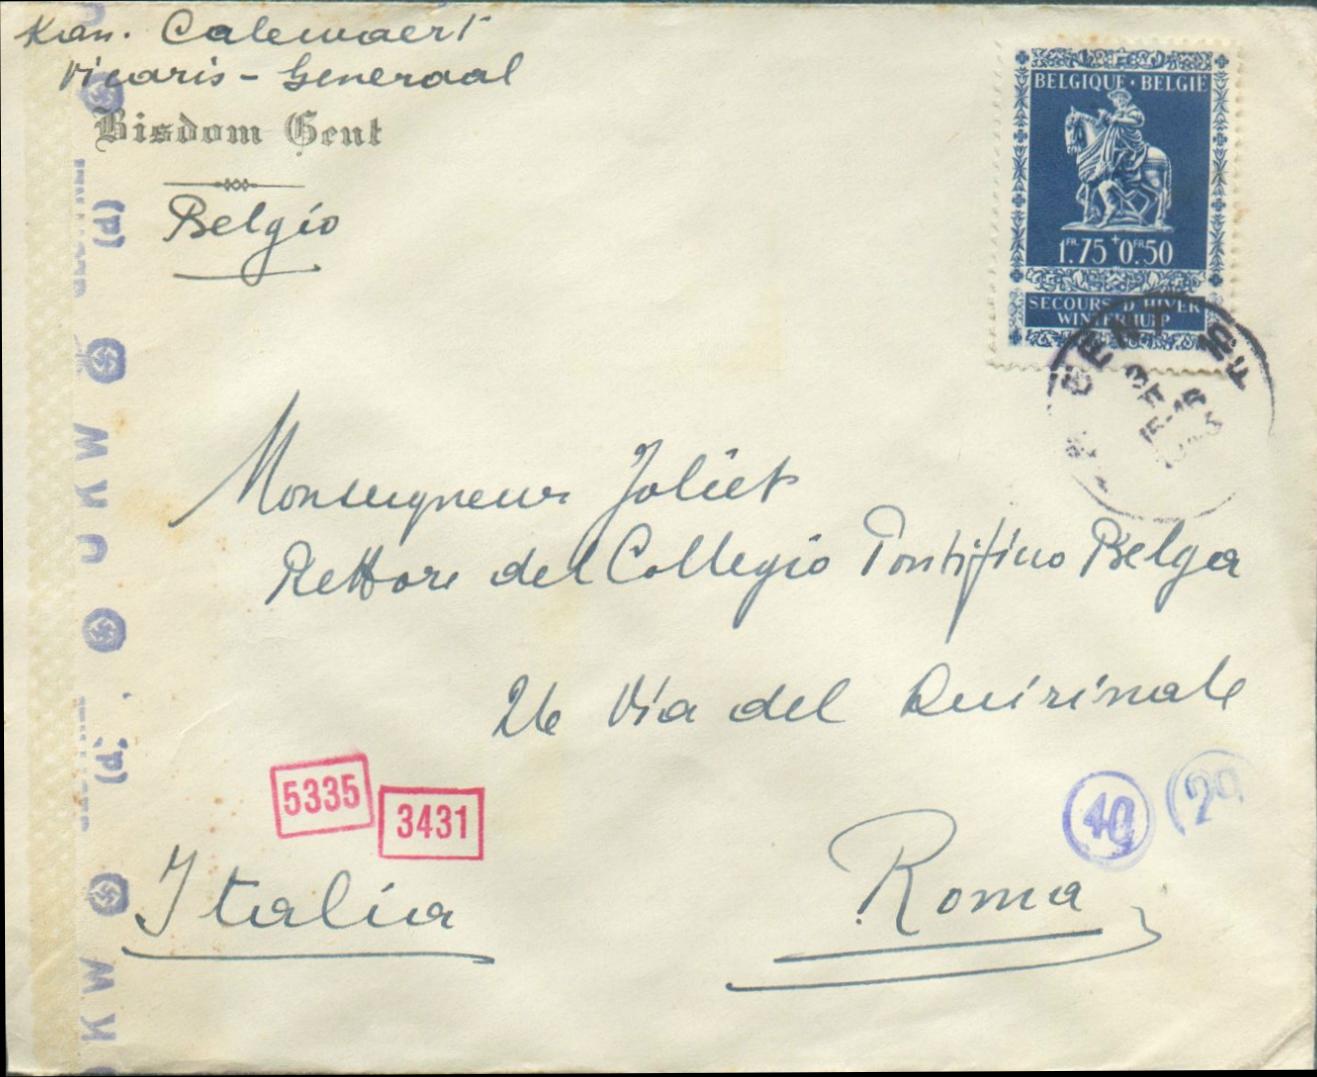 Kan. Calewaert
Vicaris-Generaal
Bisdom Gent
Belgio
BELGIQUE · BELGIE
1FR.75 + 0FR.50
SECOURS D'HIVER
WINTERHULP
GENT
15-16
Monseigneur Joliet
Rettore del Collegio Pontifino Belga
26 Via del Quirinale
5335
3431
40
29
Italia
Roma